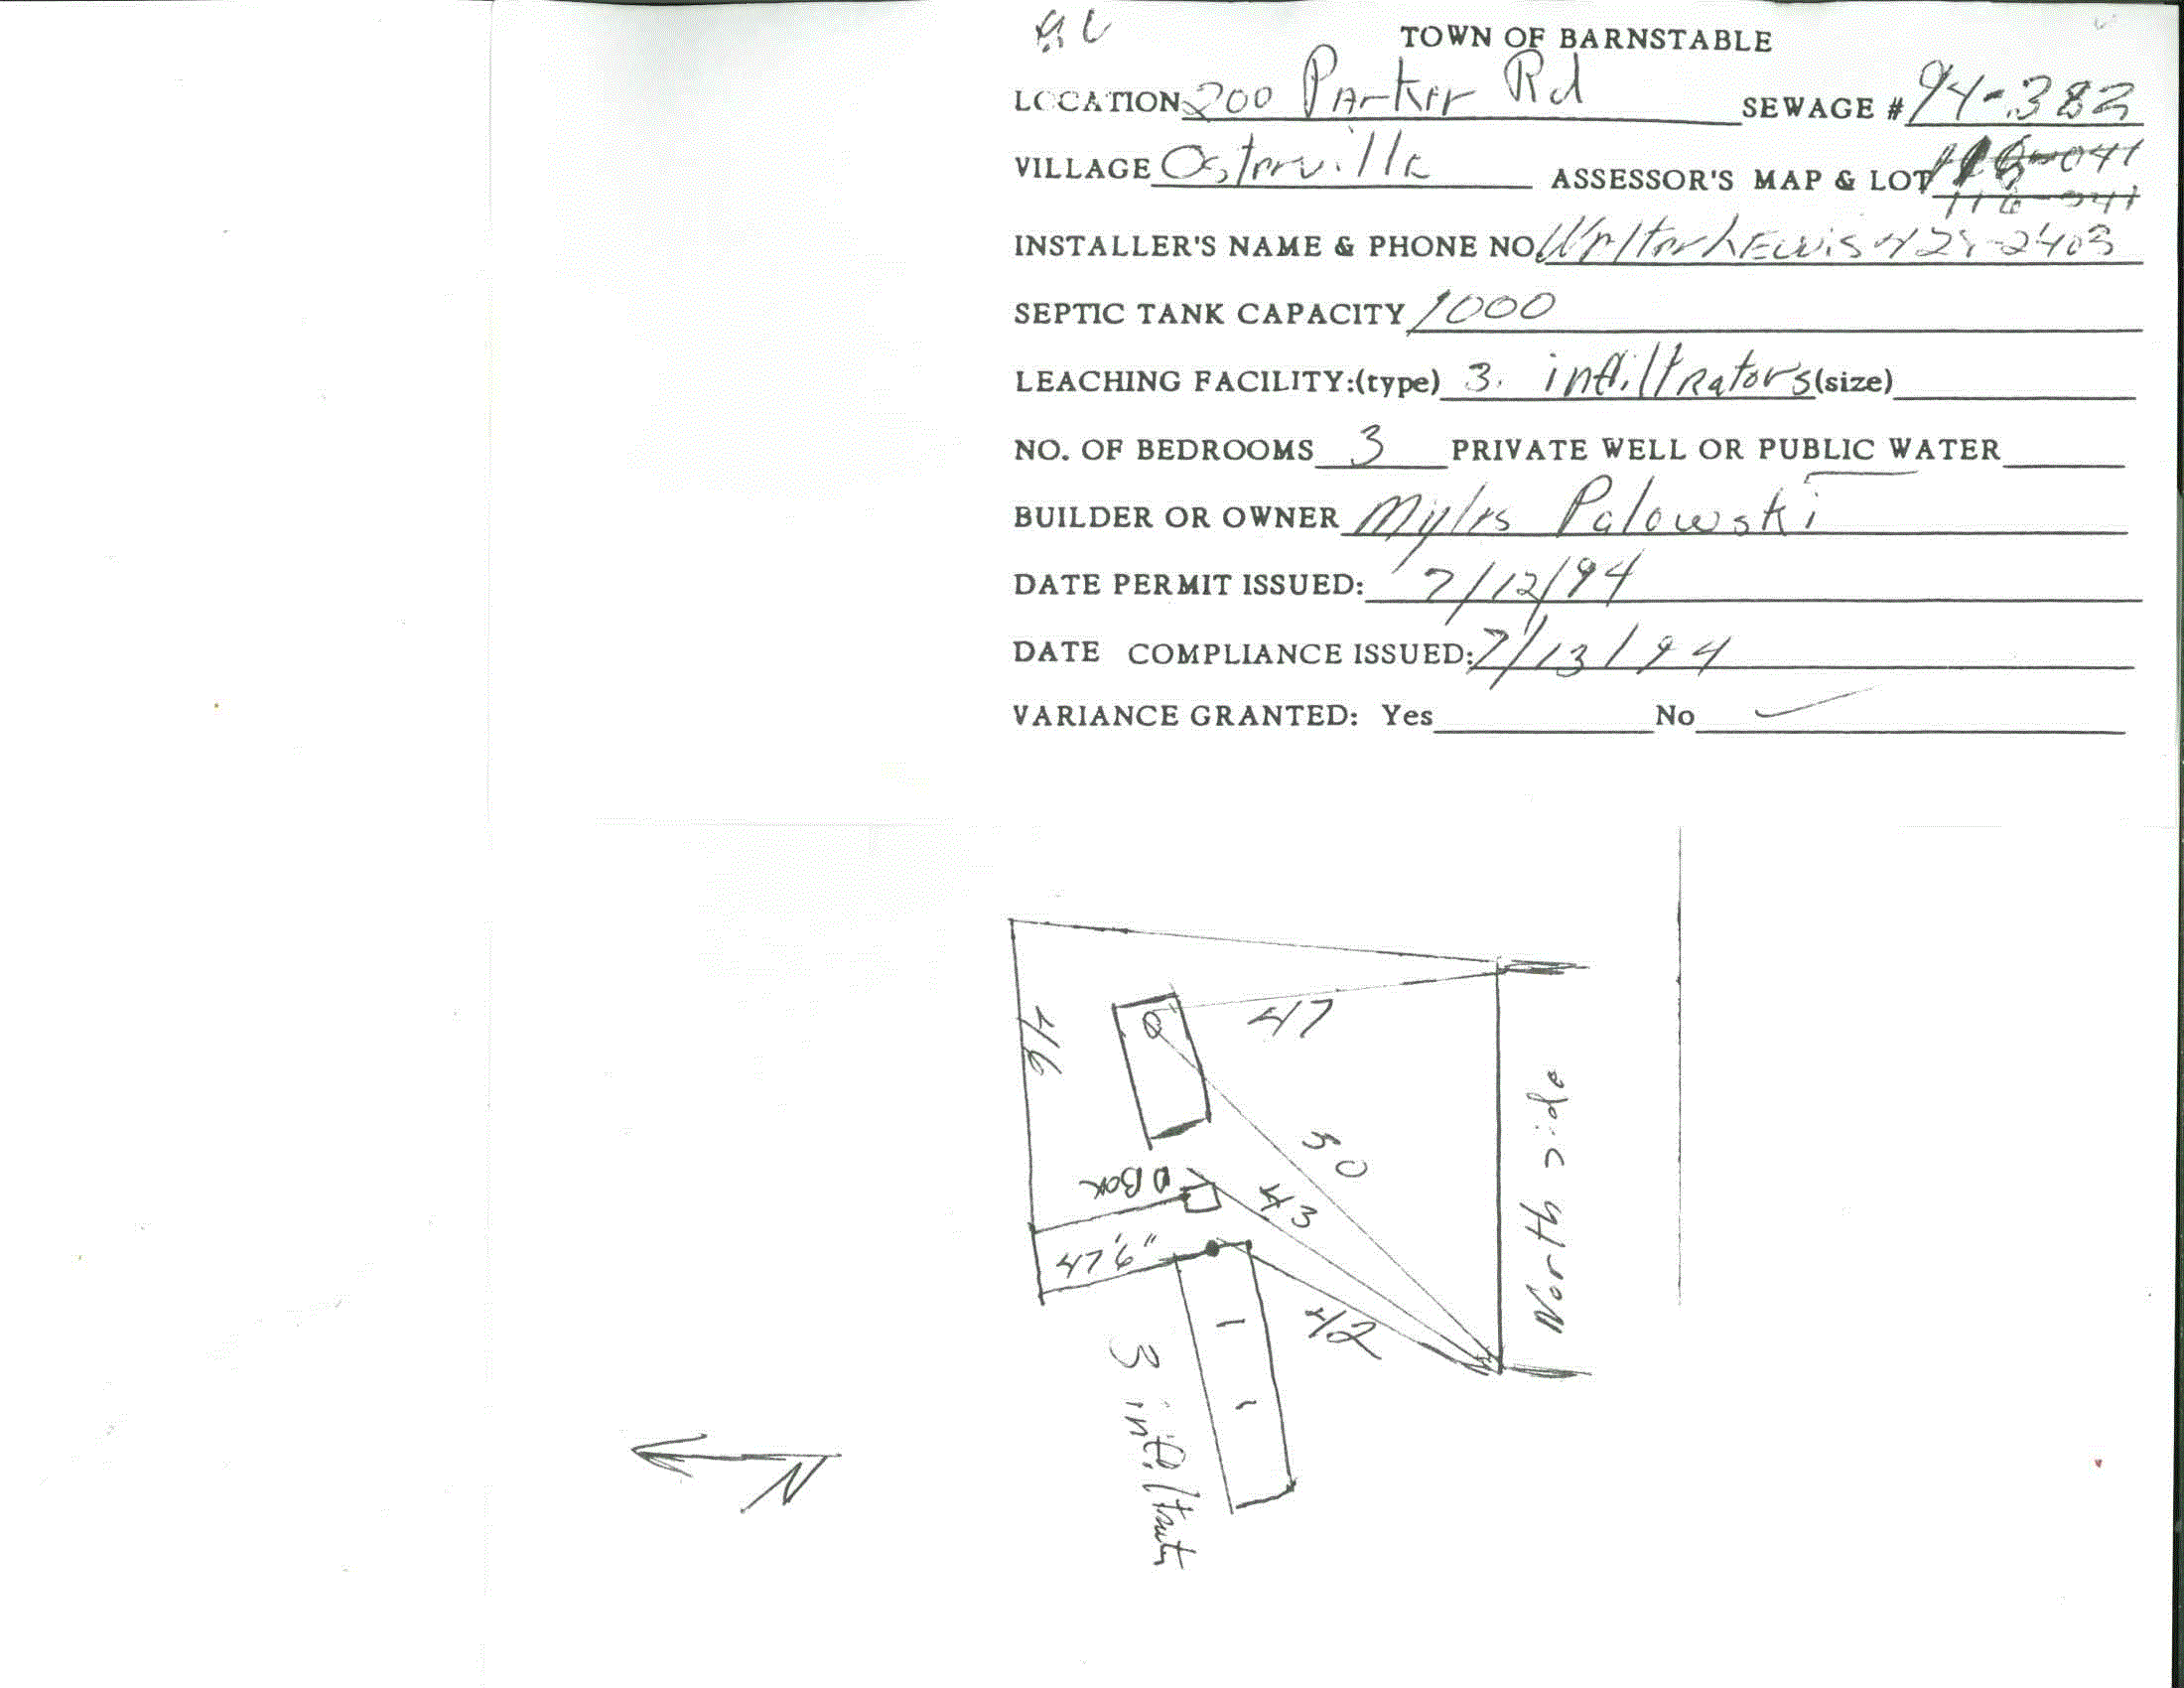 TOWN OF BARNSTABLE
LOCATION 200 Parker Rd SEWAGE # 94-382
VILLAGE Osterville ASSESSOR'S MAP & LOT 116-041
116-041
INSTALLER'S NAME & PHONE NO. Walter Lewis 428-2403
SEPTIC TANK CAPACITY 1000
LEACHING FACILITY:(type) 3. infiltrators (size)
NO. OF BEDROOMS 3 PRIVATE WELL OR PUBLIC WATER
BUILDER OR OWNER Myles Palowski
DATE PERMIT ISSUED: 7/12/94
DATE COMPLIANCE ISSUED: 7/13/94
VARIANCE GRANTED: Yes No ✓
47
46
50
D Box
43
47'6"
42
North side
3 infiltrators
N